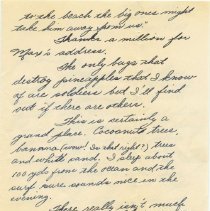 to the beach the big ones might
take him away from us."
Thanks a million for
Max's address.
The only bugs that
destroy pineapples that I know
of are soldiers but I'll find
out if there are others.
This is certainly a
grand place. Cocoanuts trees,
banana (wow! Is that right?) trees
and white sand. I sleep about
100 yds from the ocean and the
surf sure sounds nice in the
evening.
There really isn't much